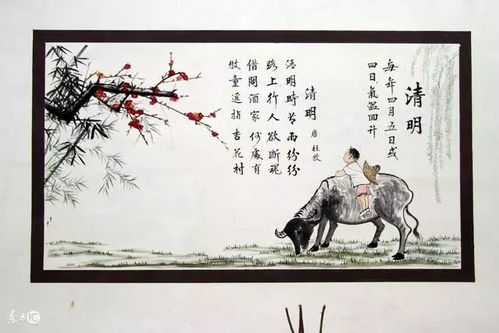 清明
每年四月五日或
四日氣温回升
清明 唐 杜牧
清明時节雨纷纷
路上行人欲断魂
借問酒家何處有
牧童遥指杏花村
东方IC